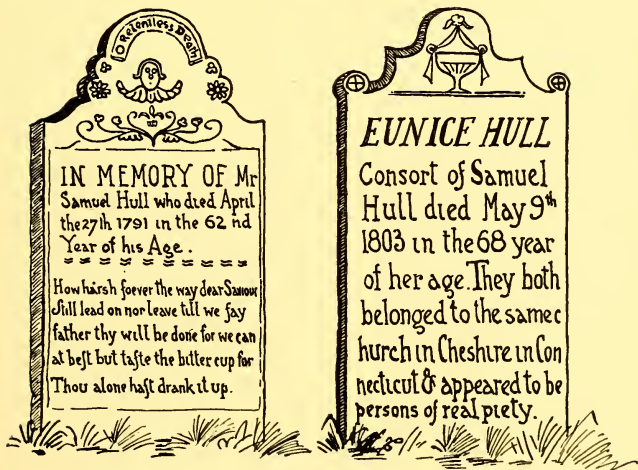 O Relentless Death
IN MEMORY OF Mr
Samuel Hull who died April
the 27th 1791 in the 62 nd
Year of his Age.
How harsh soever the way dear Saviour
Still lead on nor leave till we say
father thy will be done for we can
at best but taste the bitter cup for
Thou alone hast drank it up.
EUNICE HULL
Consort of Samuel
Hull died May 9th
1803 in the 68 year
of her age. They both
belonged to the same c
hurch in Cheshire in Con
necticut & appeared to be
persons of real piety.